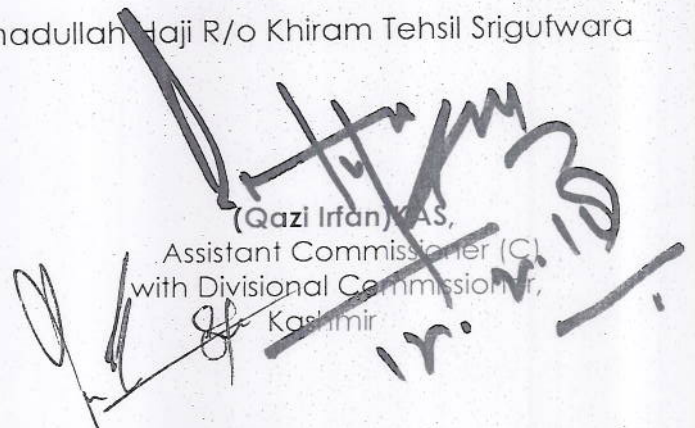 madullah Haji R/o Khiram Tehsil Srigufwara
(Qazi Irfan) KAS,
Assistant Commissioner (C)
with Divisional Commissioner,
Kashmir